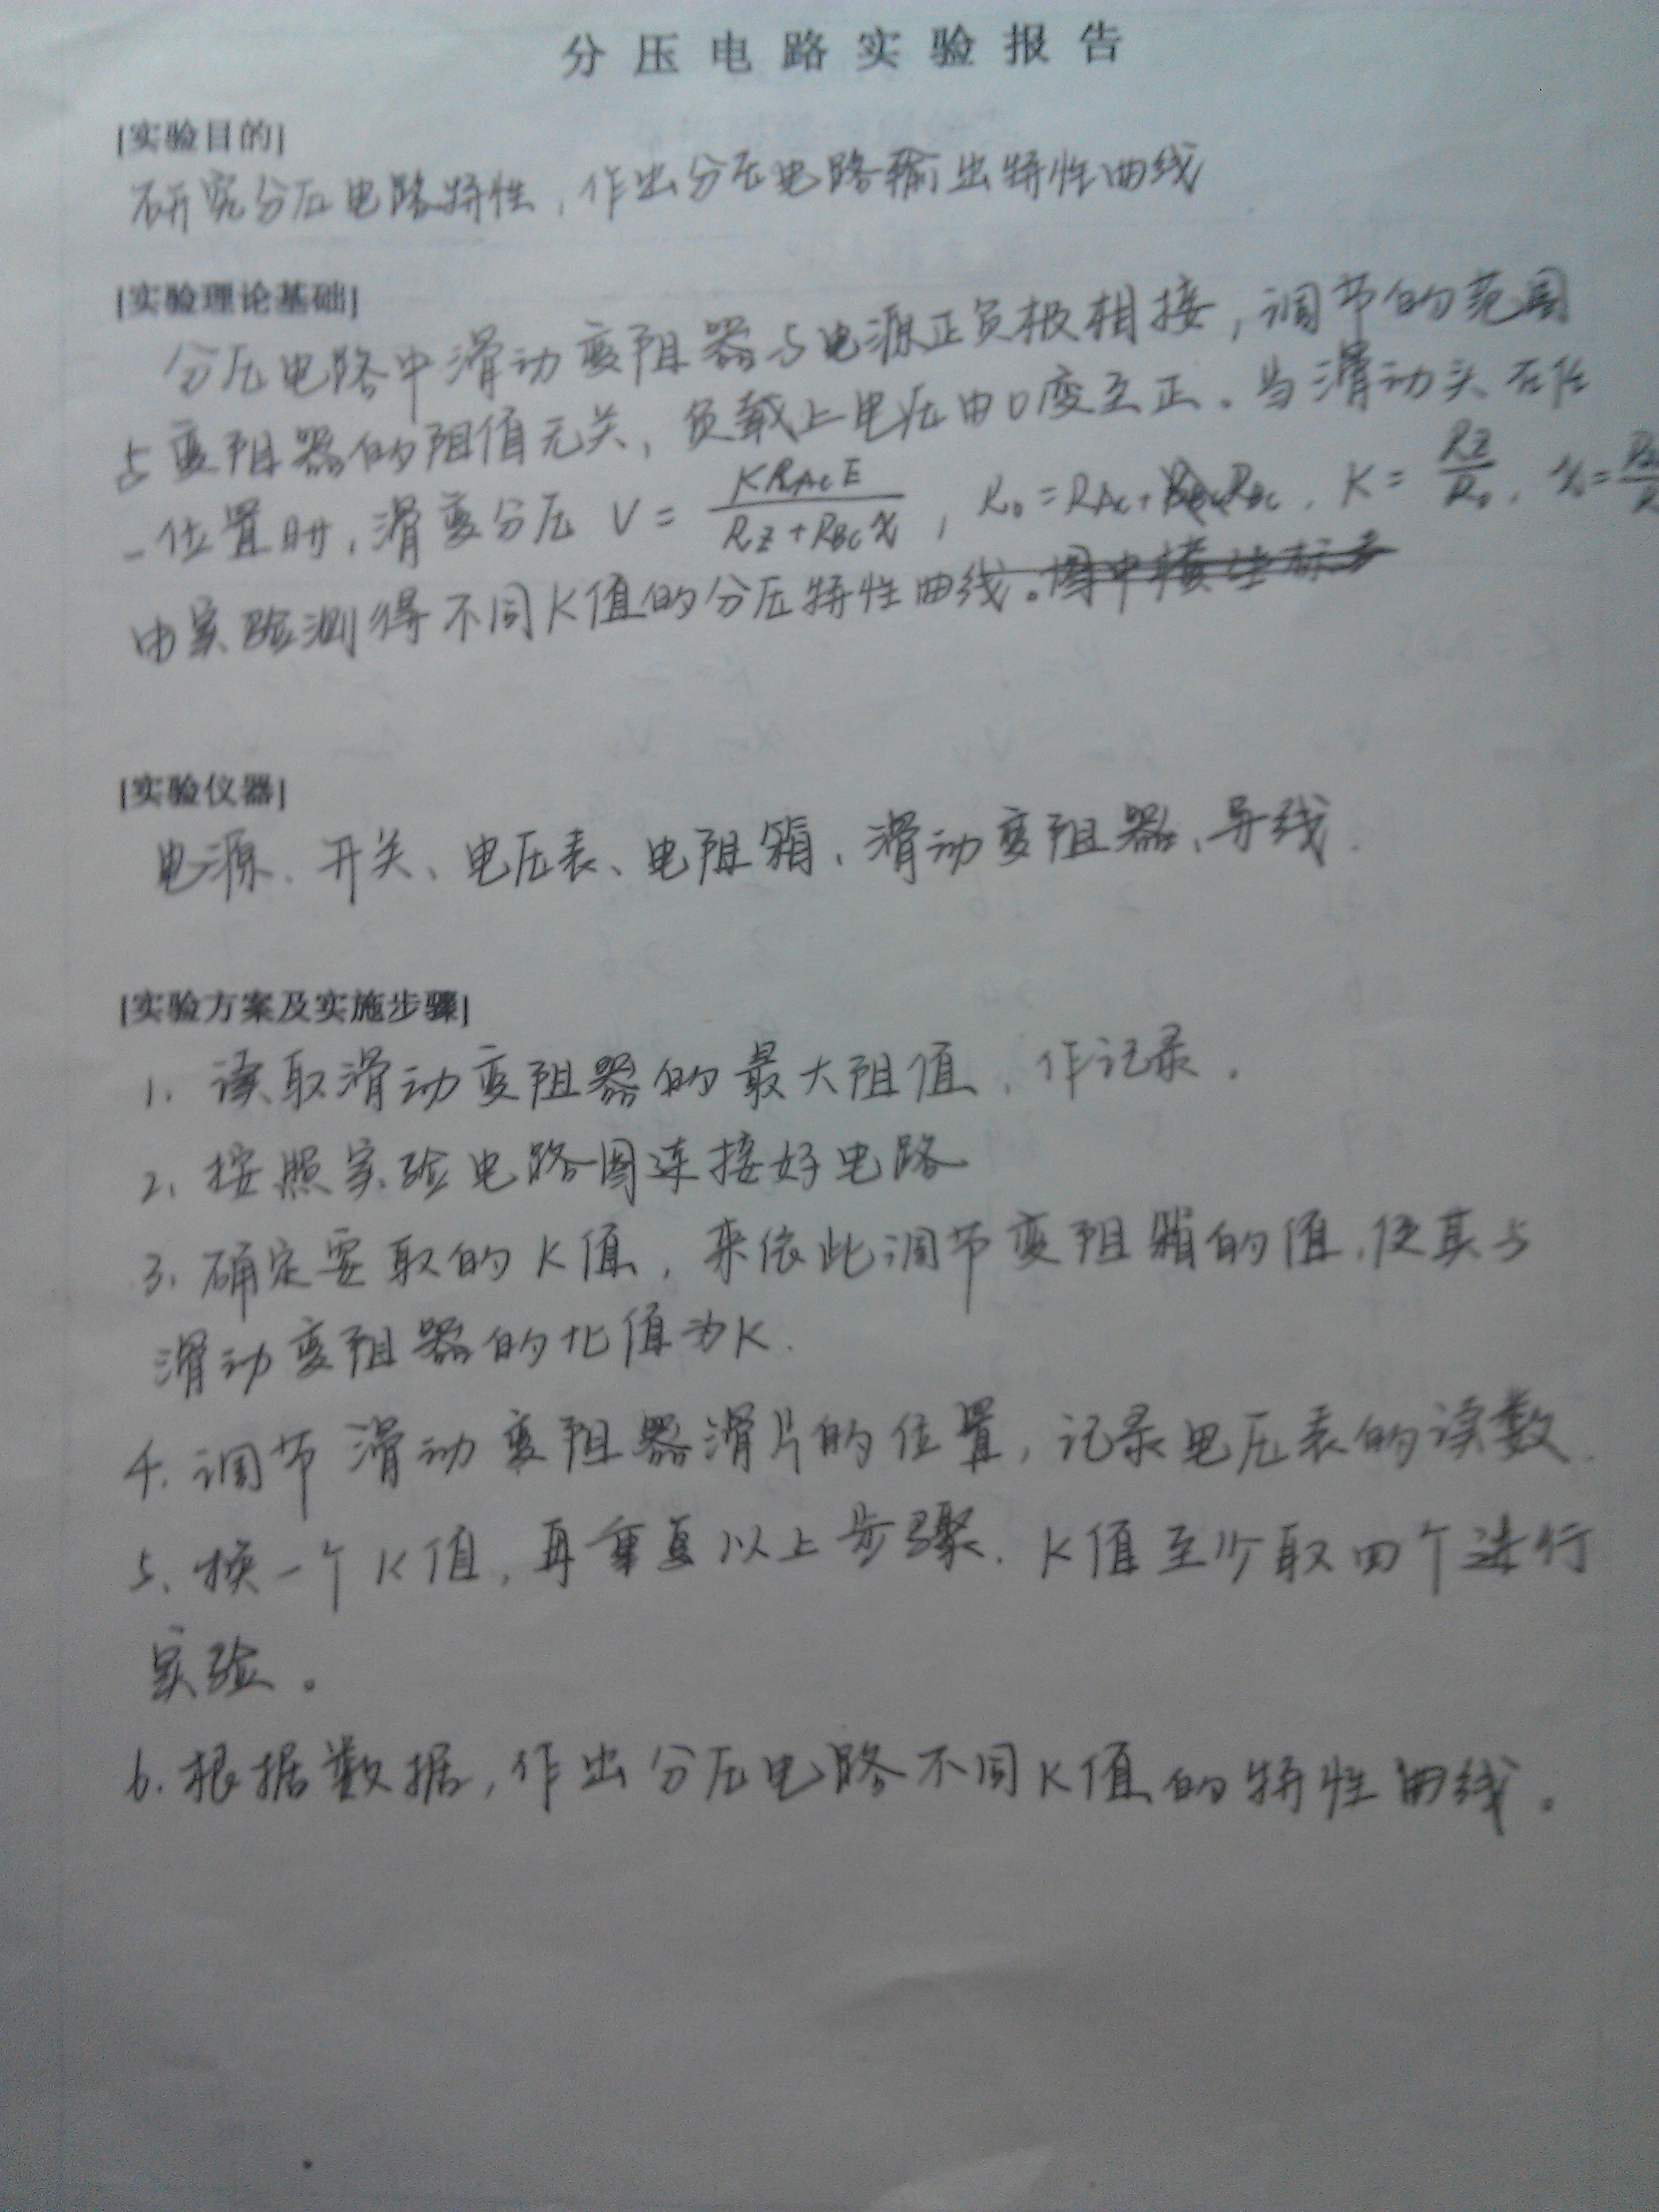 分压电路实验报告
[实验目的]
研究分压电路特性，作出分压电路输出特性曲线
[实验理论基础]
分压电路中滑动变阻器与电源正负极相接，调节的范围
与变阻器的阻值无关，负载上电压由0变至正。当滑动头在任
一位置时，滑变分压 V = KRACE / (RZ + RBCX)，R0 = RAC + RBC，K = RZ/R0，X =
由实验测得不同K值的分压特性曲线。图中横坐标
[实验仪器]
电源、开关、电压表、电阻箱、滑动变阻器、导线.
[实验方案及实施步骤]
1. 读取滑动变阻器的最大阻值，作记录.
2. 按照实验电路图连接好电路
3. 确定要取的K值，来依此调节变阻箱的值，使其与
滑动变阻器的比值为K.
4. 调节滑动变阻器滑片的位置，记录电压表的读数.
5. 换一个K值，再重复以上步骤. K值至少取四个进行
实验。
6. 根据数据，作出分压电路不同K值的特性曲线。